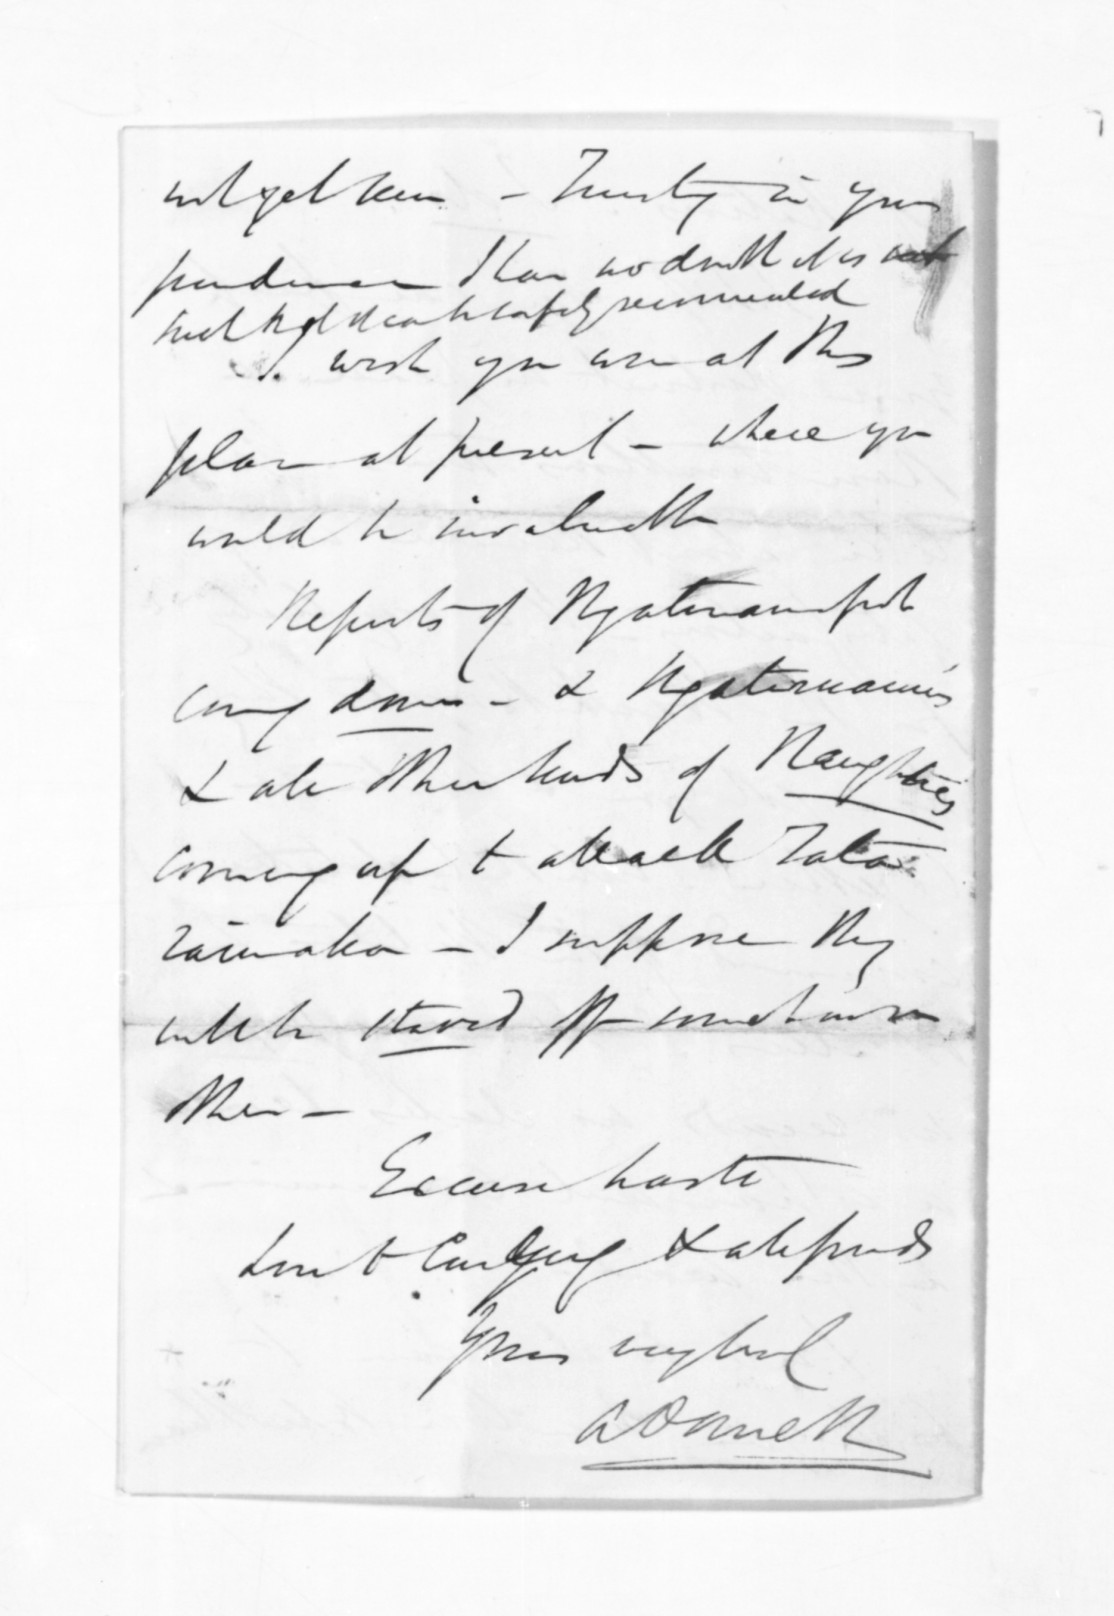 not get here - Trusting in your
prudence I have no doubt it is
such that it can be safely recommended
I wish you were at this
place at present - where you
would be invaluable
Reports of Ngatimaniapoto
coming down - & Ngatiruanuis
& all other kinds of Naughties
coming up to attack Tata-
raimaka - I suppose they
will be staved off somehow or
other -
Excuse haste
Love to & all friends
Yours very truly